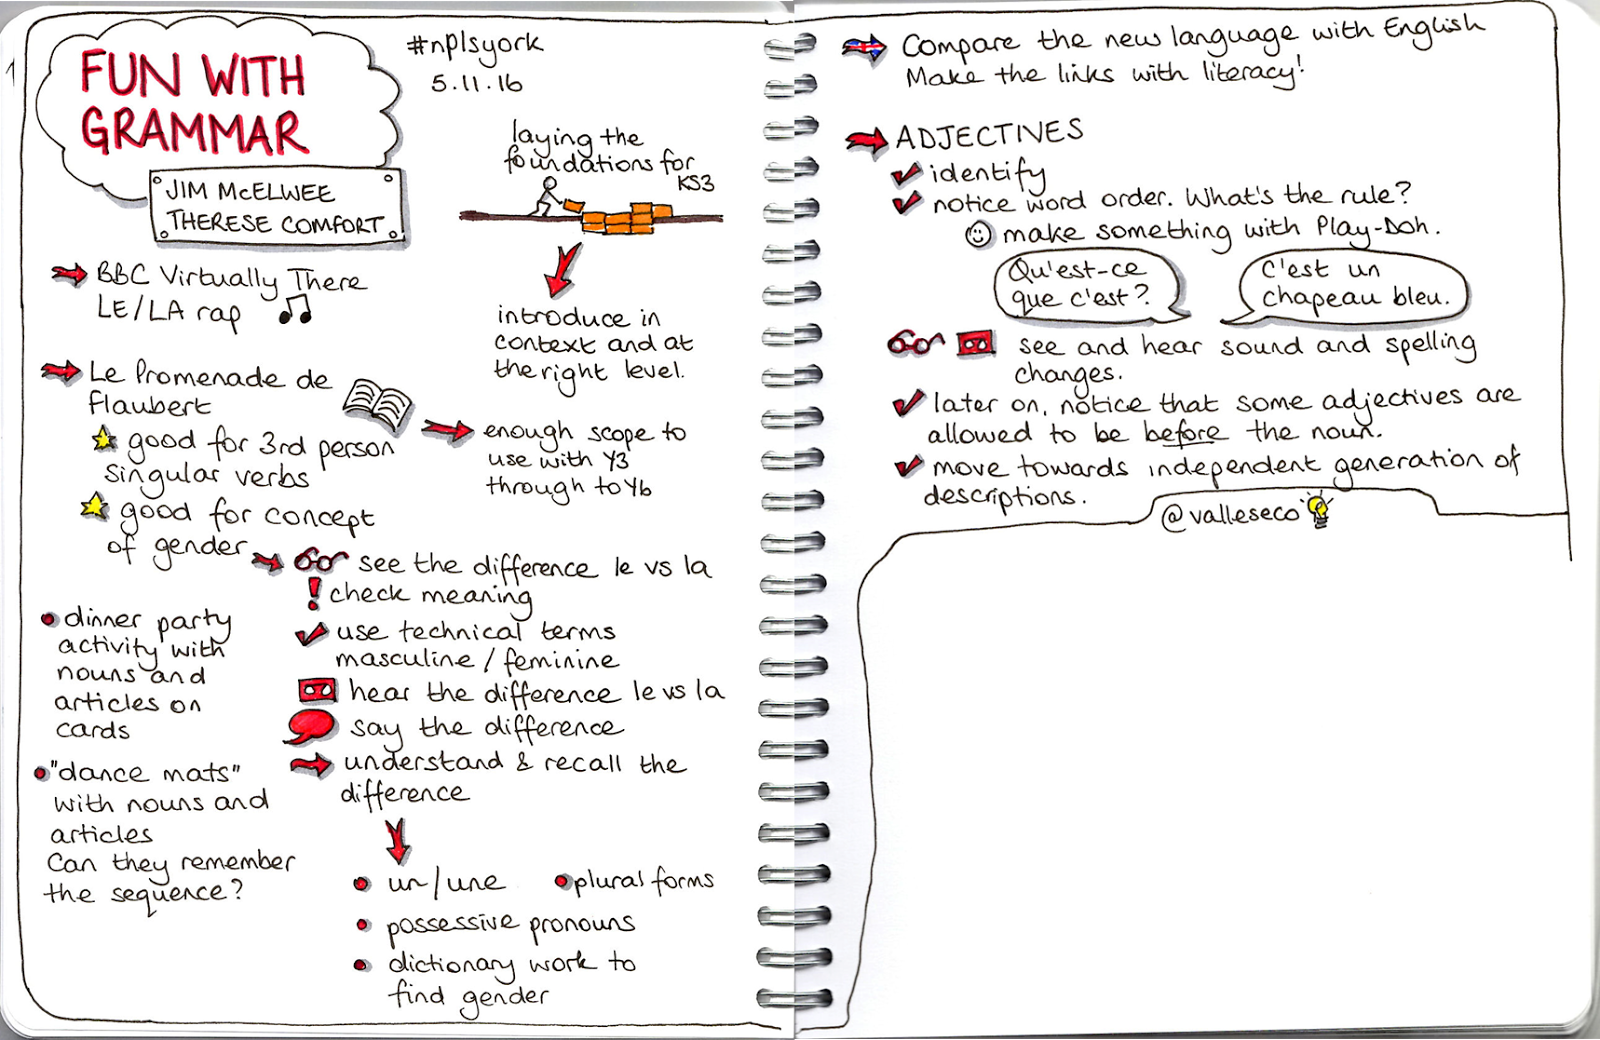 FUN WITH
GRAMMAR
JIM McELWEE
THERESE COMFORT
#nplsyork
5.11.16
laying the
foundations for
KS3
introduce in
context and at
the right level.
BBC Virtually There
LE/LA rap
Le Promenade de
flaubert
good for 3rd person
singular verbs
good for concept
of gender
enough scope to
use with Y3
through to Y6
see the difference le vs la
! check meaning
use technical terms
masculine / feminine
hear the difference le vs la
say the difference
understand & recall the
difference
un/une
plural forms
possessive pronouns
dictionary work to
find gender
dinner party
activity with
nouns and
articles on
cards
"dance mats"
with nouns and
articles
Can they remember
the sequence?
Compare the new language with English
Make the links with literacy!
ADJECTIVES
identify
notice word order. What's the rule?
make something with Play-Doh.
Qu'est-ce
que c'est?
C'est un
chapeau bleu.
see and hear sound and spelling
changes.
later on, notice that some adjectives are
allowed to be before the noun.
move towards independent generation of
descriptions.
@valleseco